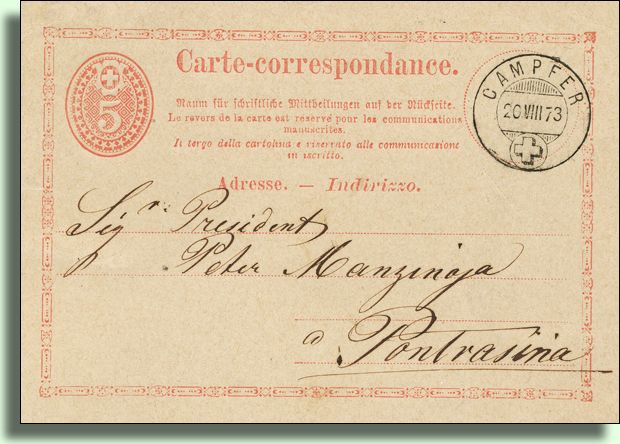 5
Carte-correspondance.
Raum für schriftliche Mittheilungen auf der Rückseite.
Le revers de la carte est réservé pour les communications
manuscrites.
Il tergo della cartolina è riservato alle communicazione
in iscritto.
CAMPFER
20 VIII 73
Adresse. — Indirizzo.
Sigr. President
Peter Manzinoja
a Pontrasina